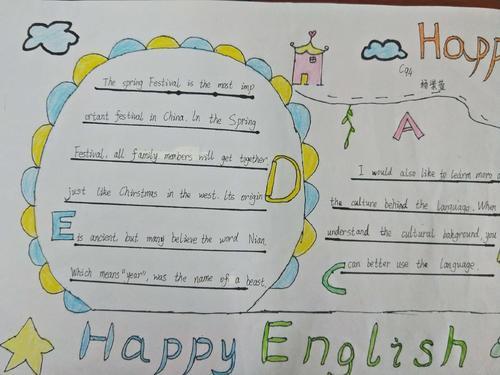 Happ
C94
The spring Festival is the most imp
ortant festival in China. In the Spring
Festival, all family menbers will get together,
just like Chirstmas in the west. Its origin
is ancient, but many believe the word Nian,
Which means "year", was the name of a beast.
D
E
A
I would also like to learn more a
the culture behind the language. When
understand the cultural bakground, you
can better use the language.
C
Happy English